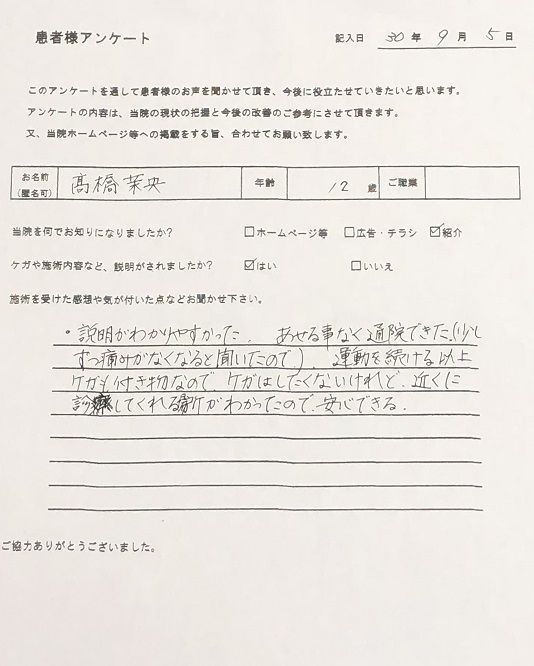 患者様アンケート
記入日 30年9月5日
このアンケートを通して患者様のお声を聞かせて頂き、今後に役立たせていきたいと思います。
アンケートの内容は、当院の現状の把握と今後の改善のご参考にさせて頂きます。
又、当院ホームページ等への掲載をする旨、合わせてお願い致します。
お名前(匿名可) 髙橋茉央 年齢 12歳 ご職業
当院を何でお知りになりましたか? □ホームページ等 □広告・チラシ ☑紹介
ケガや施術内容など、説明がされましたか? ☑はい □いいえ
施術を受けた感想や気が付いた点などお聞かせ下さい。
・説明がわかりやすかった. あせる事なく通院できた.(少し
ずつ痛みがなくなると聞いたので). 運動を続ける以上
ケガも付き物なので ケガはしたくないけれど. 近くに
診てくれる所がわかったので. 安心できる.
ご協力ありがとうございました。